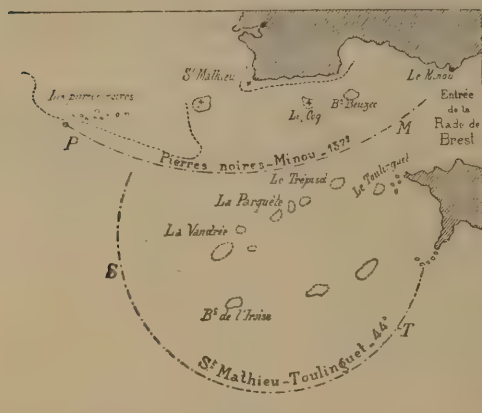 St Mathieu
Le Minou
Les pierres noires
Le Coq
Bse Beuzec
Entrée
de la
Rade de
Brest
P
M
Pierres noires-Minou-137°
Le Trépied
Le Toulinguet
La Parquète
La Vandrée
S
Bse de l'Iroise
T
St Mathieu-Toulinguet-44°